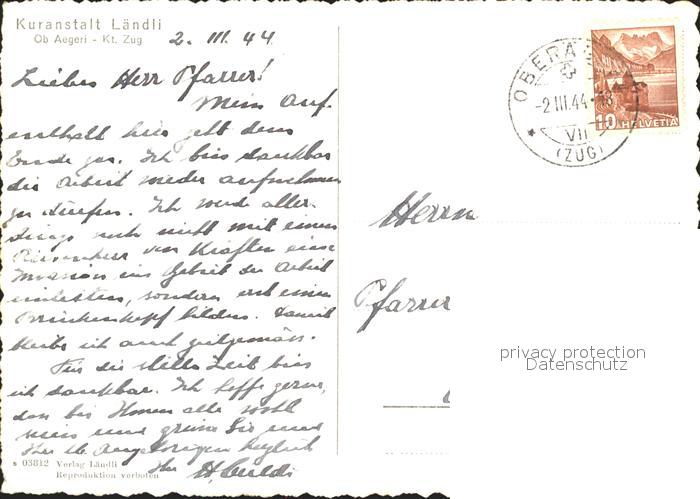 Kuranstalt Ländli
Ob Aegeri - Kt. Zug
2. III. 44
Lieber Herr Pfarrer!
Mein Auf-
enthalt hier geht dem
Ende zu. Ich bin dankbar
die Arbeit wieder aufnehmen
zu dürfen. Ich werde aller-
dings noch nicht mit einem
von Kräften eine
Invasion ins Gebiet der Arbeit
einleiten, sondern erst einen
Brückenkopf bilden. Damit
bleibe ich auch zeitgemäss.
Für die stille Zeit bin
ich dankbar. Ich hoffe gerne,
dass bei Ihnen alle wohl
seien und grüsse Sie und
Ihre lb. Angehörigen herzlich
Ihr H.
s 03812 Verlag Ländli
Reproduktion verboten
OBERÄ
-2.III.44-18
VII
(ZUG)
10 HELVETIA
Herrn
Pfarrer
privacy protection
Datenschutz